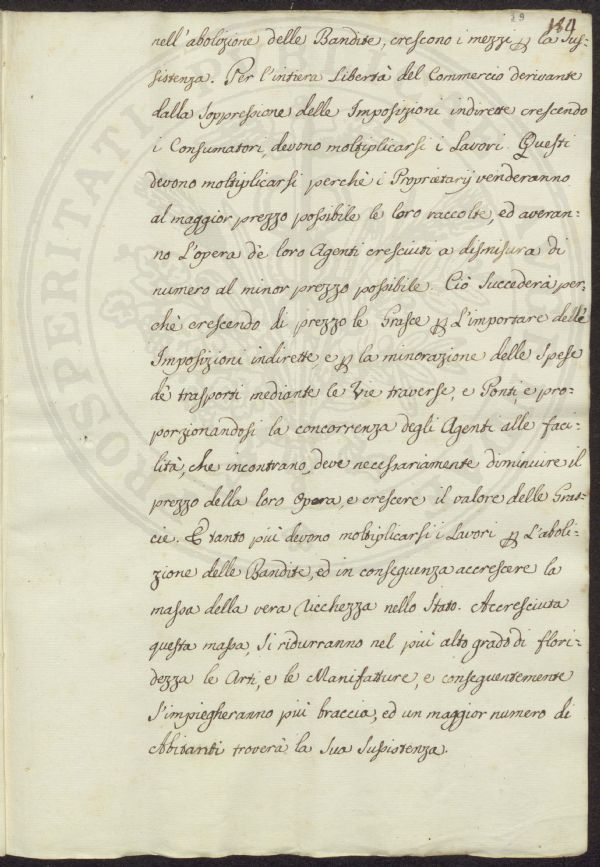 29 184
nell'abolizione delle Bandite, crescono i mezzi p la Sus-
sistenza. Per l'intiera Libertà del Commercio derivante
dalla Soppressione delle Imposizioni indirette crescendo
i Consumatori, devono moltiplicarsi i Lavori. Questi
devono moltiplicarsi perchè i Proprietarj venderanno
al maggior prezzo possibile le loro raccolte, ed averan-
no l'opera dè loro Agenti cresciuti a dismisura di
numero al minor prezzo possibile. Ciò Succederà per-
chè crescendo di prezzo le Grasce p l'importare delle
Imposizioni indirette, e p la minorazione delle Spese
dè trasporti mediante le Vie traverse, e Ponti, e pro-
porzionandosi la concorrenza degli Agenti alle faci-
lità, che incontrano, deve necessariamente diminuire il
prezzo della loro Opera, e crescere il valore delle Gras-
cie. E tanto più devono moltiplicarsi i Lavori p l'aboli-
zione delle Bandite, ed in conseguenza accrescere la
massa della vera Ricchezza nello Stato. Accresciuta
questa massa, Si ridurranno nel più alto grado di flori-
dezza le Arti, e le Manifatture, e conseguentemente
S'impiegheranno più braccia, ed un maggior numero di
Abitanti troverà la Sua Sussistenza.